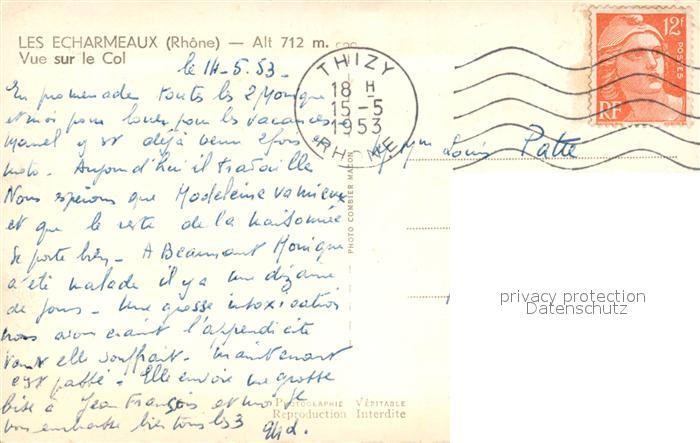 LES ECHARMEAUX (Rhône) — Alt 712 m.
Vue sur le Col
le 14-5.53-
En promenade toutes les 2 Monique
et moi pour louer pour les vacances
Marcel y est déjà venu 2 fois en
moto. Aujourd'hui il travaille
Nous esperons que Madeleine va mieux
et que le reste de la maisonnée
se porte bien - A Beaumont Monique
a été malade il y a une dizaine
de jours - Une grosse intoxication
nous avons craint l'appendicite
tant elle souffrait - maintenant
c'est passé - Elle envoie une grosse
bise à Jean François et moi je
vous embrasse bien tous les 3
THIZY
18 H
15-5
1953
RHONE
12F
POSTES
RF
Mme Louis Patte
PHOTO COMBIER MACON
privacy protection
Datenschutz
PHOTOGRAPHIE VÉRITABLE
Reproduction Interdite